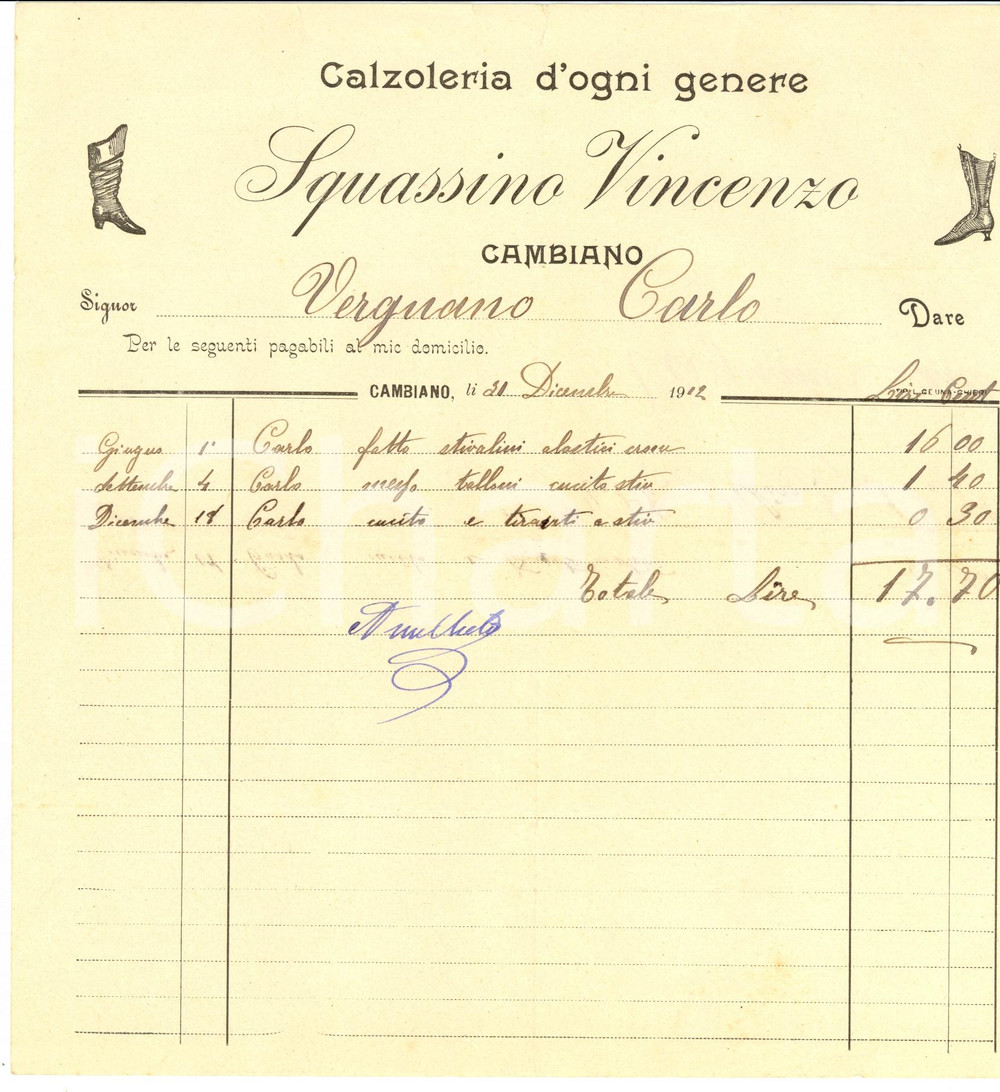 Calzoleria d'ogni genere
Squassino Vincenzo
CAMBIANO
Signor Vergnano Carlo Dare
Per le seguenti pagabili al mio domicilio.
CAMBIANO, li 31 Dicembre 1912 Lire Cent
Giugno 1° Carlo fatto stivalini elastici 16 00
Settembre 4 Carlo messo talloni cucito stiv 1 40
Dicembre 18 Carlo cucito e tiranti a stiv 0 30
Totale Lire 17.70